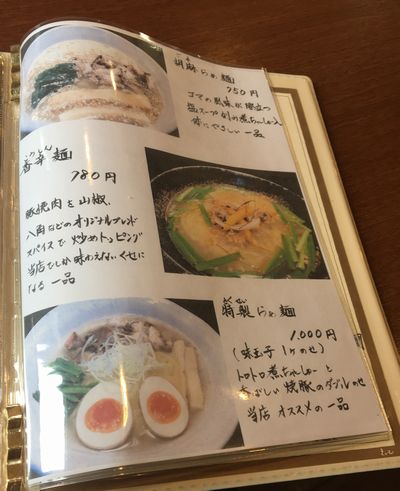 胡麻らぁ麺
750円
ゴマの風味が際立つ
塩スープ 刻み煮ちゃーしゅー入
体にやさしい一品
香辛麺
780円
豚焼肉を山椒、
八角などのオリジナルブレンド
スパイスで炒めトッピング
当店でしか味わえないくせに
なる一品
とくせい
特製らぁ麺
1.000円
(味玉子 1ケのせ)
トロトロ煮ちゃーしゅーと
香ばしい焼豚のダブルのせ
当店オススメの一品